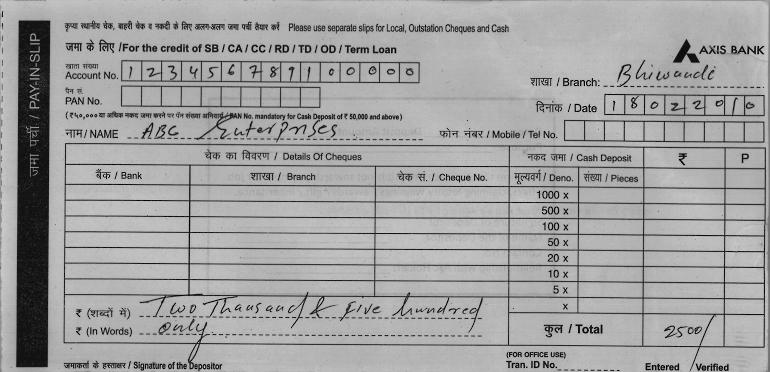 कृपा स्थानीय चेक, बाहरी चेक व नकदी के लिए अलग-अलग जमा पर्ची तैयार करें Please use separate slips for Local, Outstation Cheques and Cash
जमा के लिए /For the credit of SB / CA / CC / RD / TD / OD / Term Loan
AXIS BANK
जमा पर्ची / PAY-IN-SLIP
खाता संख्या
Account No. 1 2 3 4 5 6 7 8 9 1 0 0 0 0 0
शाखा / Branch: Bhiwandi
पैन सं.
PAN No.
दिनांक / Date 1 8 0 2 2 0 1 0
(₹ ५०,००० या अधिक नकद जमा करने पर पैन संख्या अनिवार्य/PAN No. mandatory for Cash Deposit of ₹ 50,000 and above)
नाम/NAME ABC Enterprises फोन नंबर / Mobile / Tel No.
चेक का विवरण / Details Of Cheques नकद जमा / Cash Deposit ₹ P
बैंक / Bank शाखा / Branch चेक सं. / Cheque No. मूल्यवर्ग / Deno. संख्या / Pieces
1000 x
500 x
100 x
50 x
20 x
10 x
5 x
x
₹ (शब्दों में) Two Thousand & five hundred
₹ (In Words) only
कुल / Total 2500/
जमाकर्ता के हस्ताक्षर / Signature of the Depositor
(FOR OFFICE USE)
Tran. ID No. Entered / Verified